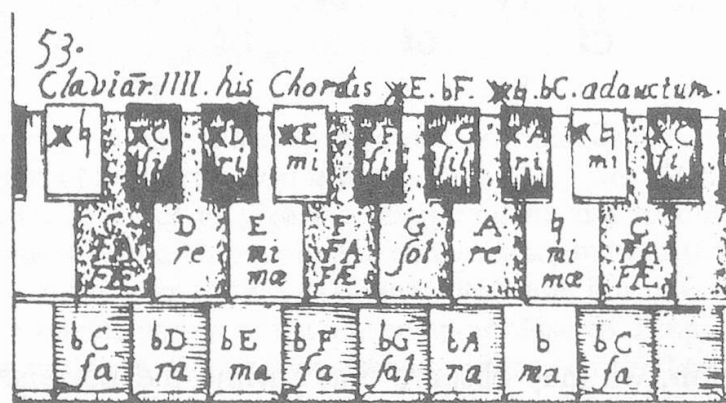 53.
Claviãr. IIII. his Chordis ×E. bF. ×♮. bC. adauctum.
×♮ ×C ×D ×E ×F ×G ×A ×♮ ×C
fi ri mi fi sil ri mi fi
C D E F G A ♮ C
FA re mi FA sol re mi FA
FÆ mæ FÆ mæ FÆ
bC bD bE bF bG bA b bC
fa ra ma fa sal ra ma fa